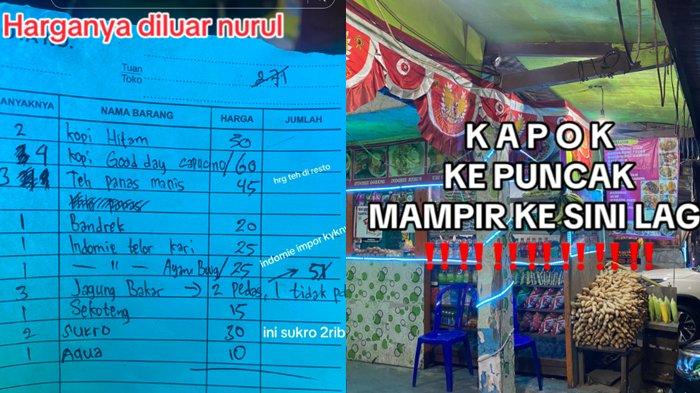 Harganya diluar nurul
Tuan
Toko
271
ANYAKNYA NAMA BARANG HARGA JUMLAH
2 kopi Hitam 30
4 kopi Good day capucino 60
3 Teh panas manis 45
hrg teh di resto
1 Bandrek 20
1 Indomie telor kari 25
indomie impor kykny
1 — " — Ayam Bwg 25 → 5x
3 Jagung Bakar → 2 pedas, 1 tidak pe
1 Sekoteng 15
2 Sukro 30 ini sukro 2rib
1 Aqua 10
KAPOK
KE PUNCAK
MAMPIR KE SINI LAG
‼️‼️‼️‼️‼️‼️‼️‼️‼️